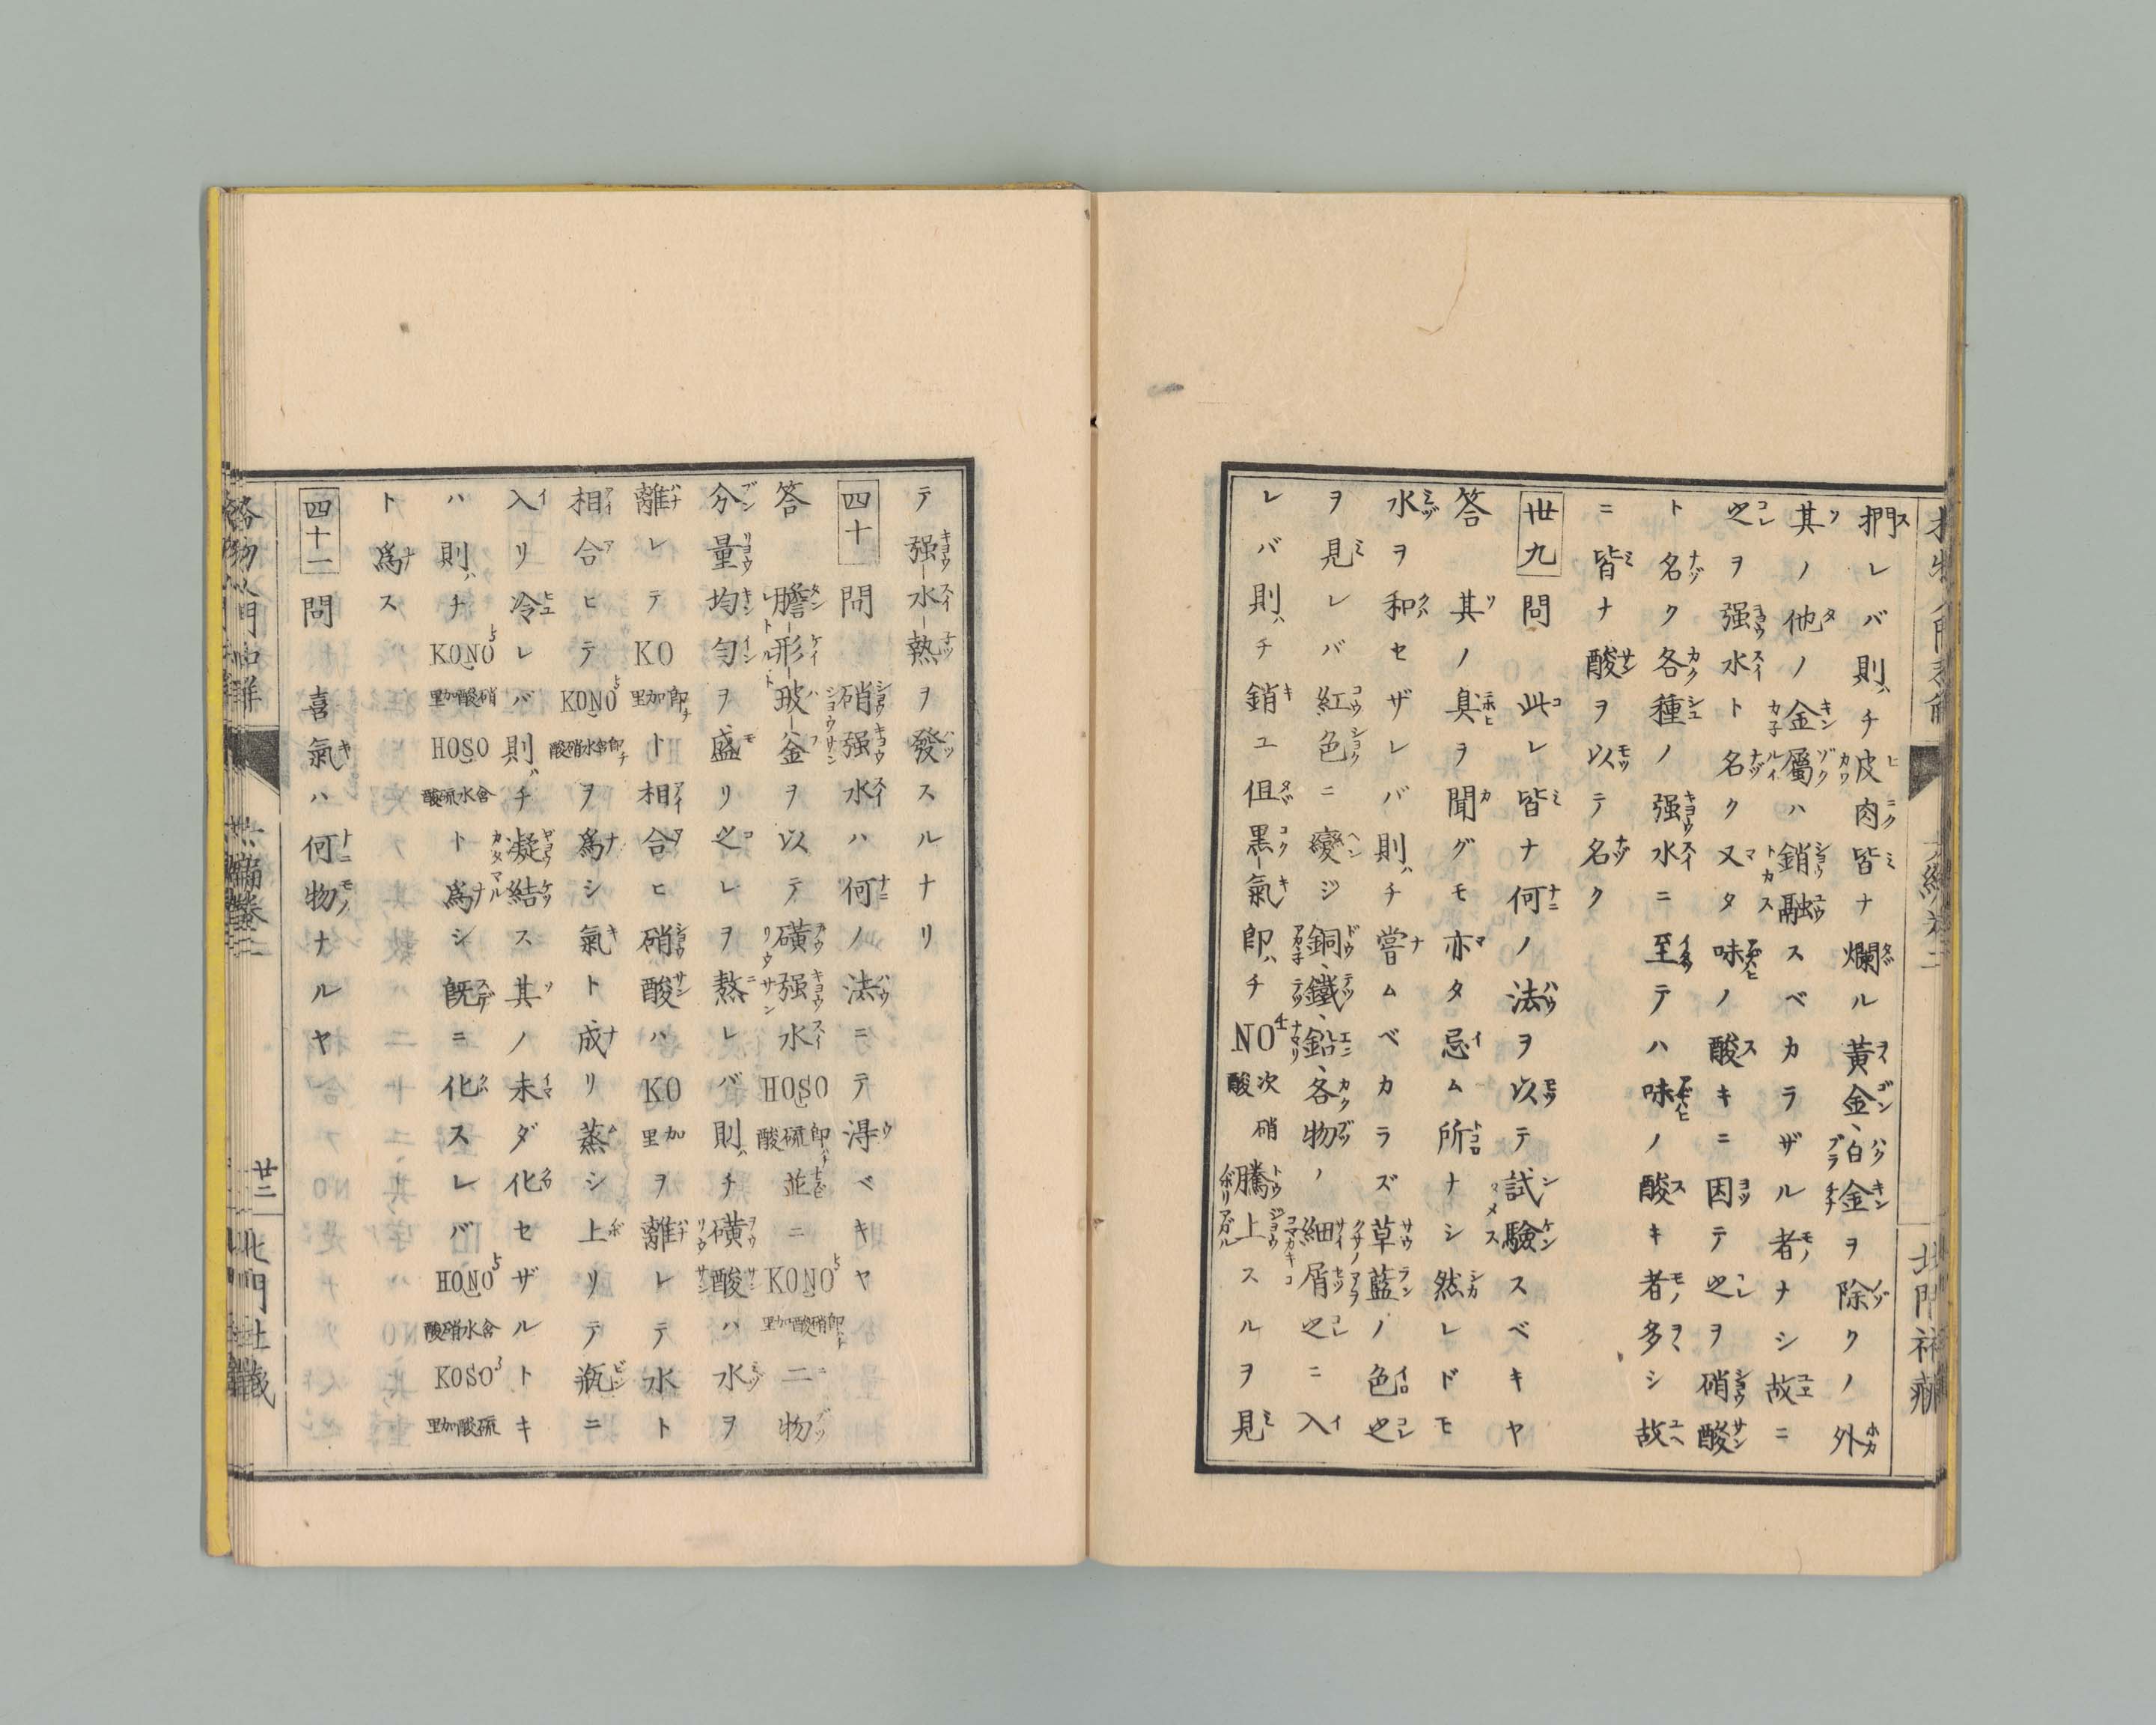 捫レバ則チ皮肉皆ナ爛ル黃金、白金ヲ除クノ外
其ノ他ノ金屬ハ銷融スベカラザル者ナシ故ニ
之ヲ强水ト名ク又タ味ノ酸キニ因テ之ヲ硝酸
ト名ク各種ノ强水ニ至テハ味ノ酸キ者多シ故
ニ皆ナ酸ヲ以テ名ク
卅九 問 此レ皆ナ何ノ法ヲ以テ試驗スベキヤ
答 其ノ臭ヲ聞グモ亦タ忌ム所ナシ然レドモ
水ヲ和セザレバ則チ嘗ムベカラズ草藍ノ色之
ヲ見レバ紅色ニ變ジ銅、鐵、鉛、各物ノ細屑之ニ入
レバ則チ銷ユ伹黑氣即チNO⁴次硝酸騰上スルヲ見
テ强水熱ヲ發スルナリ
四十 問 硝强水ハ何ノ法ニテ淂ベキヤ
答 膽形玻釜ヲ以テ磺强水HOSO³即硫酸並ニKONO⁵即硝酸加里ト二物
分量均勻ヲ盛リ之レヲ熬レバ則チ磺酸ハ水ヲ
離レテKO即加里ト相合ヒ硝酸ハKO加里ヲ離レテ水ト
相合ヒテKONO⁵即チ含水硝酸ヲ爲シ氣ト成リ蒸シ上リテ瓶ニ
入リ冷レバ則チ凝結ス其ノ未ダ化セザルトキ
ハ則ナKONO⁵硝酸加里HOSO³含水硫酸ト爲シ旣ニ化スレバHONO⁵含水硝酸KOSO³硫酸加里
ト爲ス
四十一 問 喜氣ハ何物ナルヤ
廿二 北門社藏